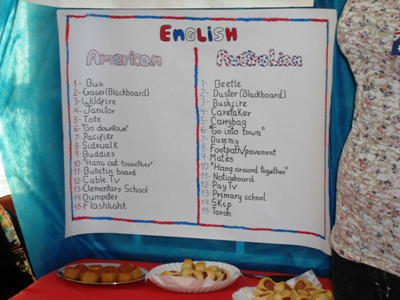 ENGLISH
American
1- Bug
2- Eraser(Blackboard)
3- Wildfire
4- Janitor
5- Tote
6- "Go downtown"
7- Pacifier
8- Sidewalk
9- Buddies
10- "Hang out together"
11- Bulletin board
12- Cable Tv
13- Elementary School
14- Dumpster
15- Flashlight
Australian
1- Beetle
2- Duster(Blackboard)
3- Bushfire
4- Caretaker
5- Carrybag
6- "Go into town"
7- Dummy
8- Footpath/pavement
9- Mates
10- "Hang around together"
11- Noticeboard
12- Pay Tv
13- Primary school
14- Skip
15- Torch